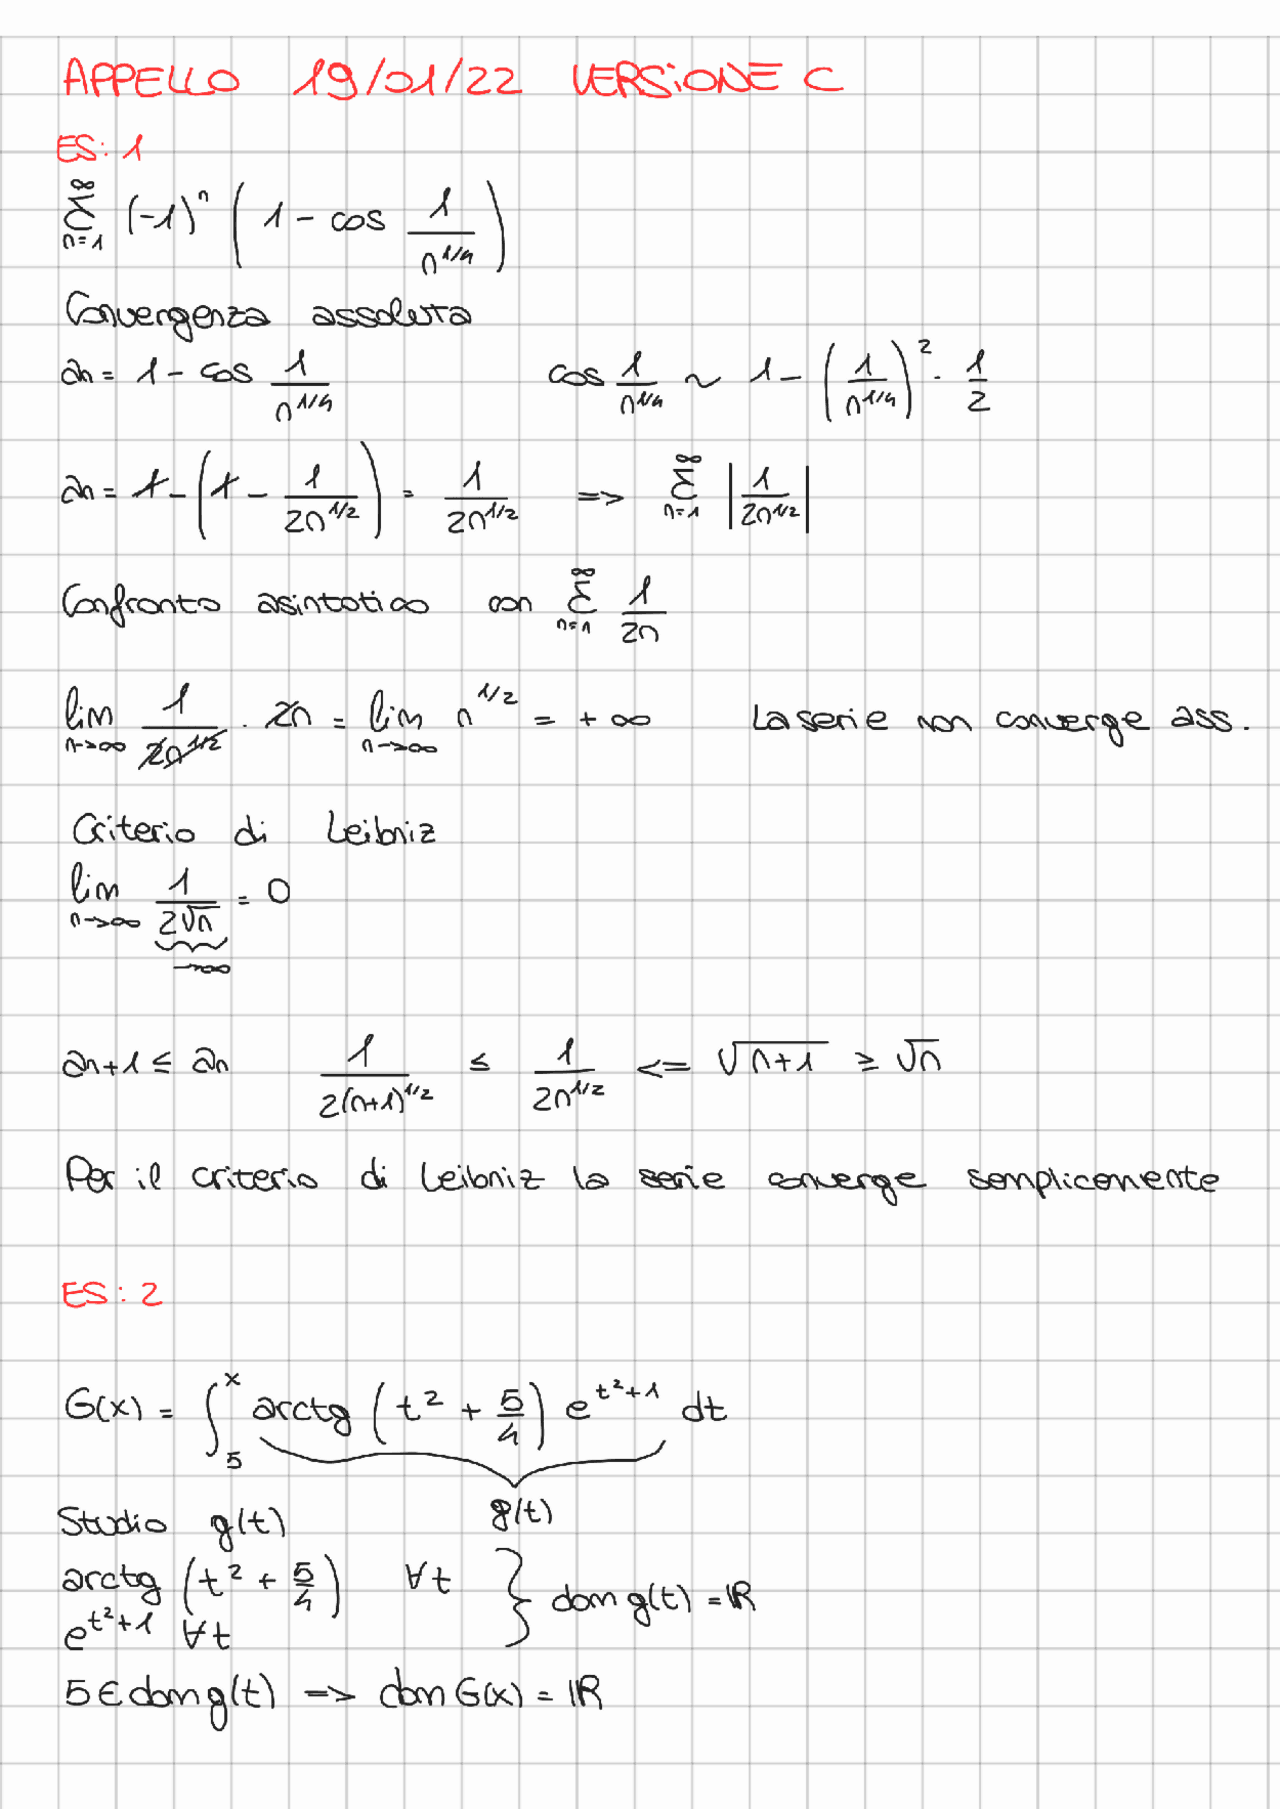 APPELLO 19/01/22 VERSIONE C
ES: 1
∞∑n=1 (-1)^n ( 1 - cos 1/n^1/4 )
Convergenza assoluta
an = 1 - cos 1/n^1/4    cos 1/n^1/4 ~ 1 - ( 1/n^1/4 )^2 · 1/2
an = 1 - ( 1 - 1/2n^1/2 ) = 1/2n^1/2 => ∞∑n=1 | 1/2n^1/2 |
Confronto asintotico con ∞∑n=1 1/2n
lim n->∞ 1/2n^1/2 · 2n = lim n->∞ n^1/2 = +∞    La serie non converge ass.
Criterio di Leibniz
lim n->∞ 1/2√n = 0
->∞
an+1 ≤ an    1/2(n+1)^1/2 ≤ 1/2n^1/2 <= √n+1 ≥ √n
Per il criterio di Leibniz la serie converge semplicemente
ES: 2
G(x) = ∫5^x arctg ( t^2 + 5/4 ) e^t^2+1 dt
g(t)
Studio g(t)
arctg ( t^2 + 5/4 ) ∀t
e^t^2+1 ∀t } dom g(t) = ℝ
5 ∈ dom g(t) => dom G(x) = ℝ